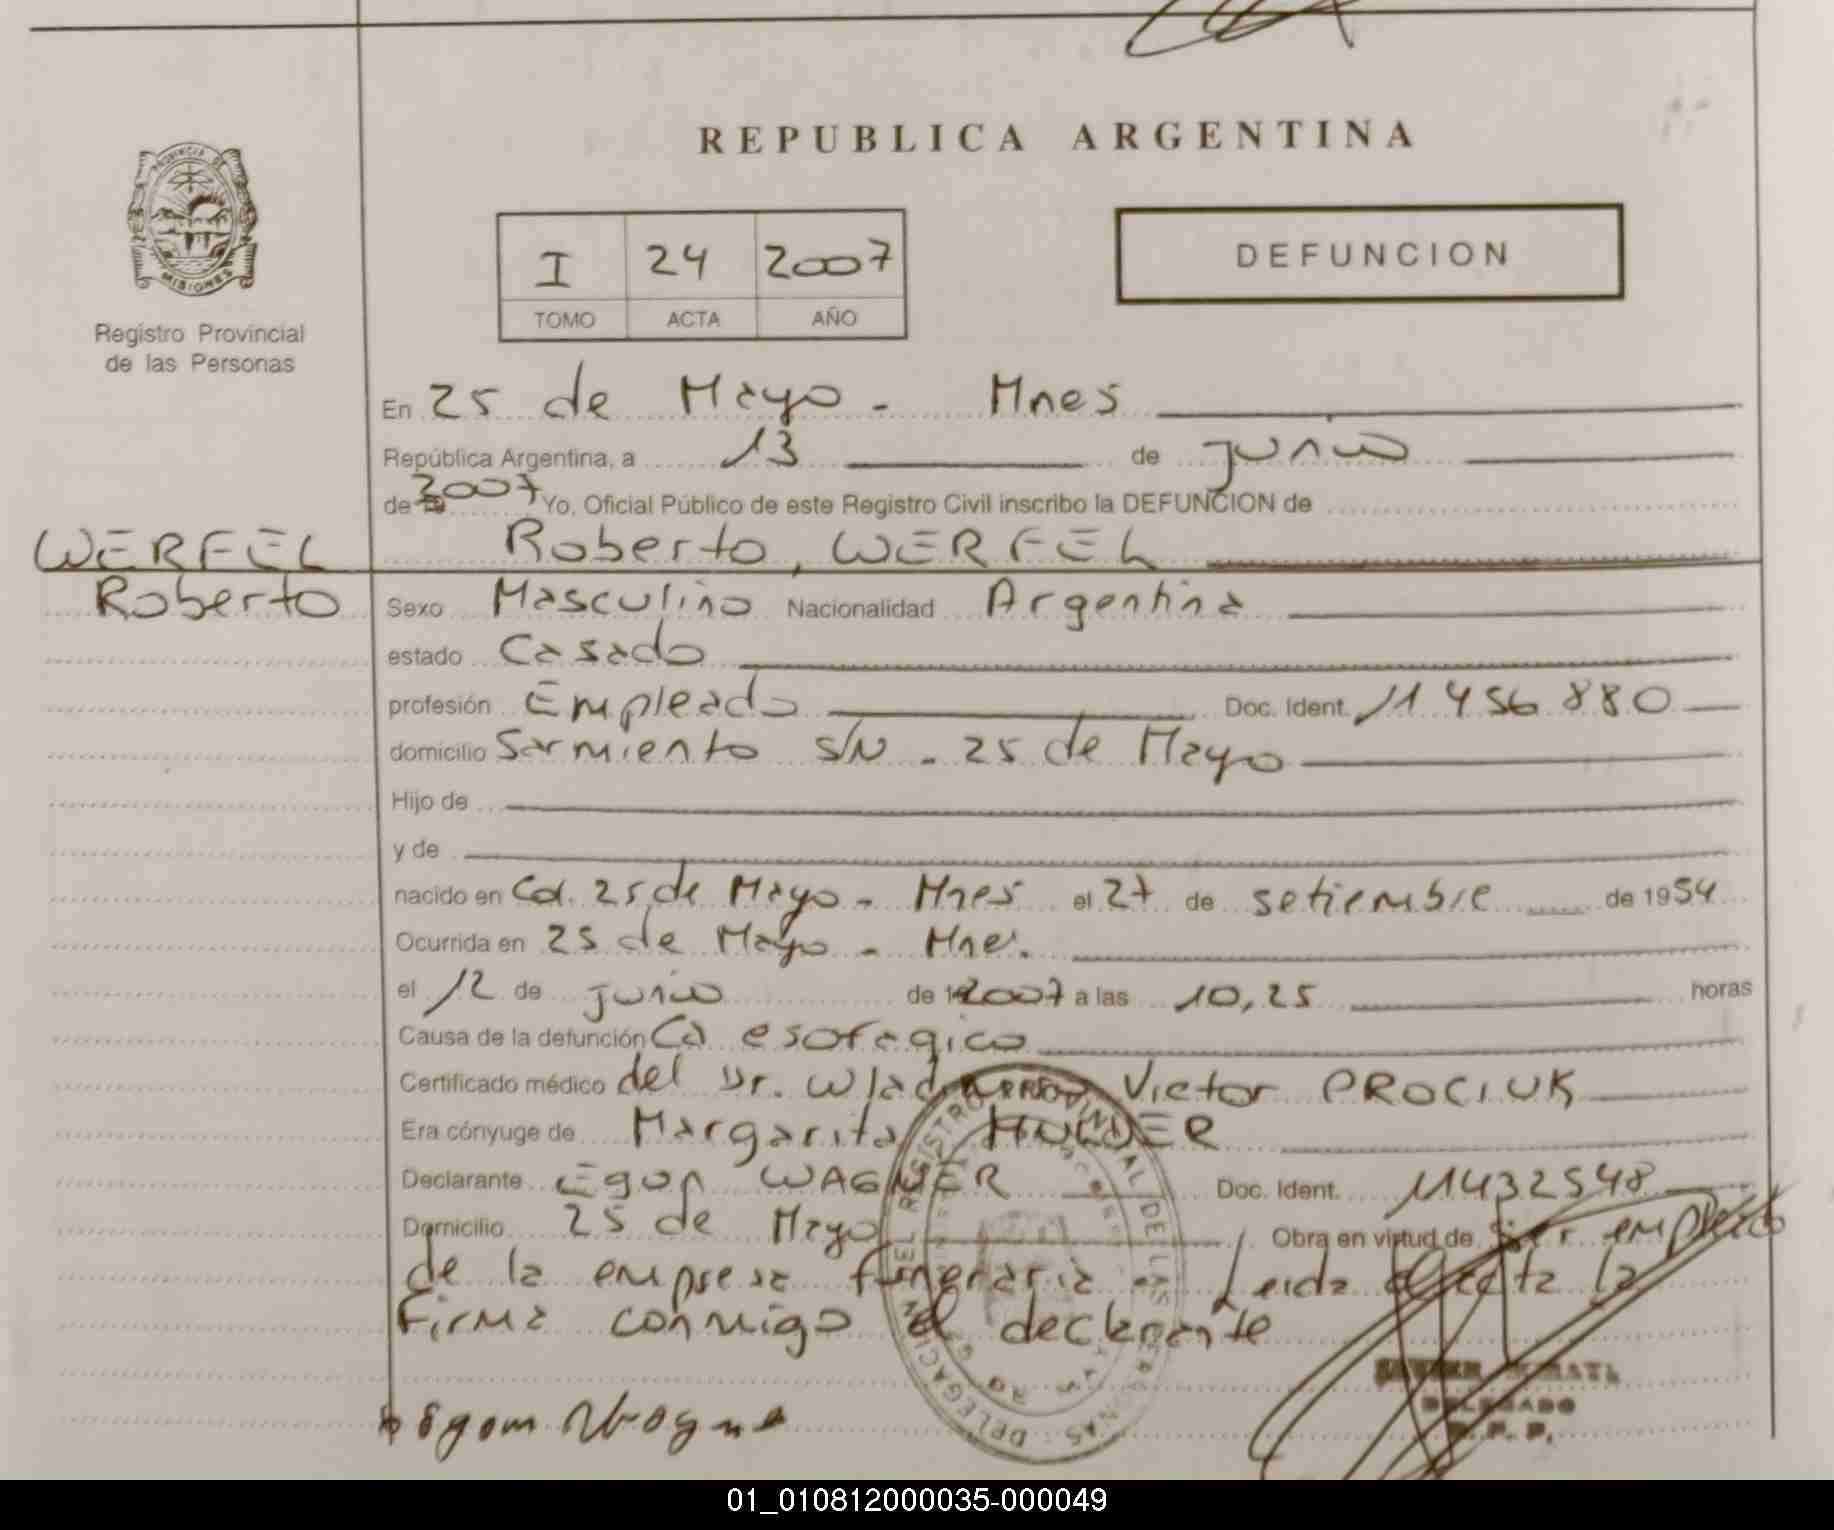 REPUBLICA ARGENTINA
PROVINCIA DE
MISIONES
Registro Provincial
de las Personas
I 24 2007
TOMO ACTA AÑO
DEFUNCION
En 25 de Mayo - Mnes
República Argentina, a 13 de junio
de 2007 Yo, Oficial Público de este Registro Civil inscribo la DEFUNCION de
WERFEL Roberto, WERFEL
Roberto Sexo Masculino Nacionalidad Argentina
estado Casado
profesión Empleado Doc. Ident. 11.456.880
domicilio Sarmiento S/N - 25 de Mayo
Hijo de
y de
nacido en Col. 25 de Mayo - Mnes el 27 de setiembre de 1954
Ocurrida en 25 de Mayo - Mnes.
el 12 de junio de 2007 a las 10,25 horas
Causa de la defunción Ca esofagico
Certificado médico del Dr. Victor PROCIUK
Era cónyuge de Margarita
Declarante Egon WAGNER Doc. Ident. 11432548
Domicilio 25 de Mayo Obra en virtud de ser empleado
de la empresa funeraria. Leida el acta la
Firma conmigo el declarante
Egon Wagner
DELEGADO
R. P. P.
REGISTRO PROVINCIAL DE LAS PERSONAS
01_010812000035-000049